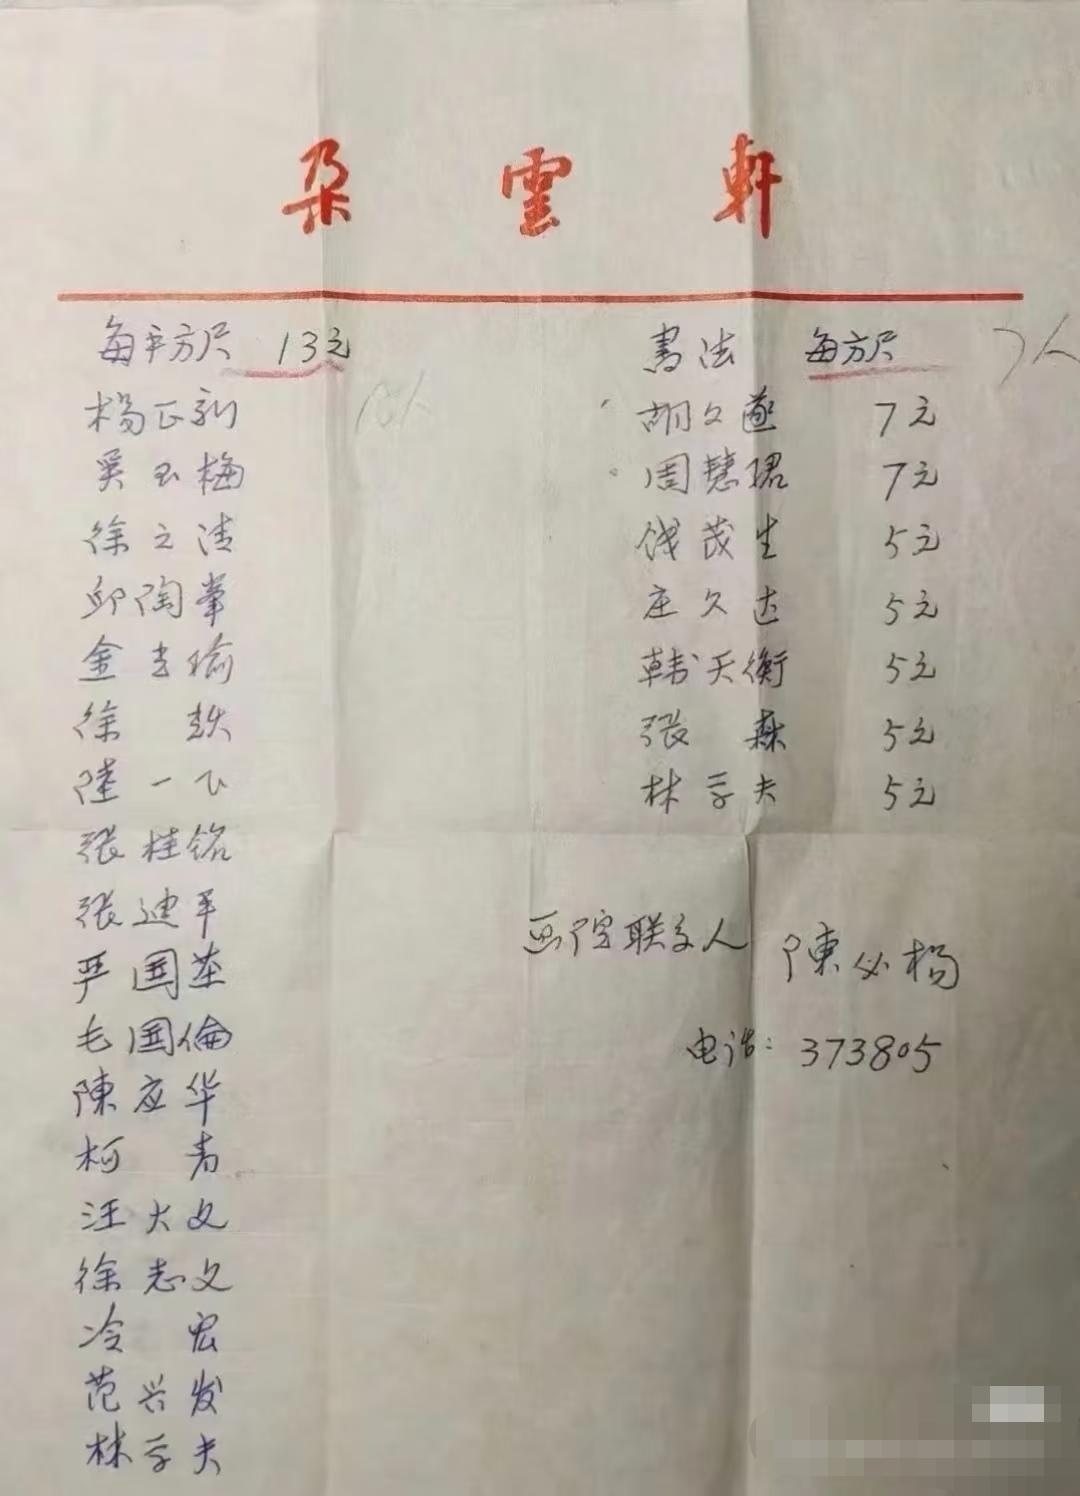 朵雲軒
每平方尺 13元
杨正新
吴玉梅
徐之清
邱陶峯
金吉瑜
徐 轶
陸一飞
张桂铭
张迪平
严国基
毛国倫
陳应华
柯 青
汪大文
徐志文
冷 宏
范兴发
林子夫
書法 每方尺 7人
胡文遂 7元
周慧珺 7元
钱茂生 5元
庄久达 5元
韩天衡 5元
张 森 5元
林子夫 5元
画院联系人 陳必杨
电话: 373805